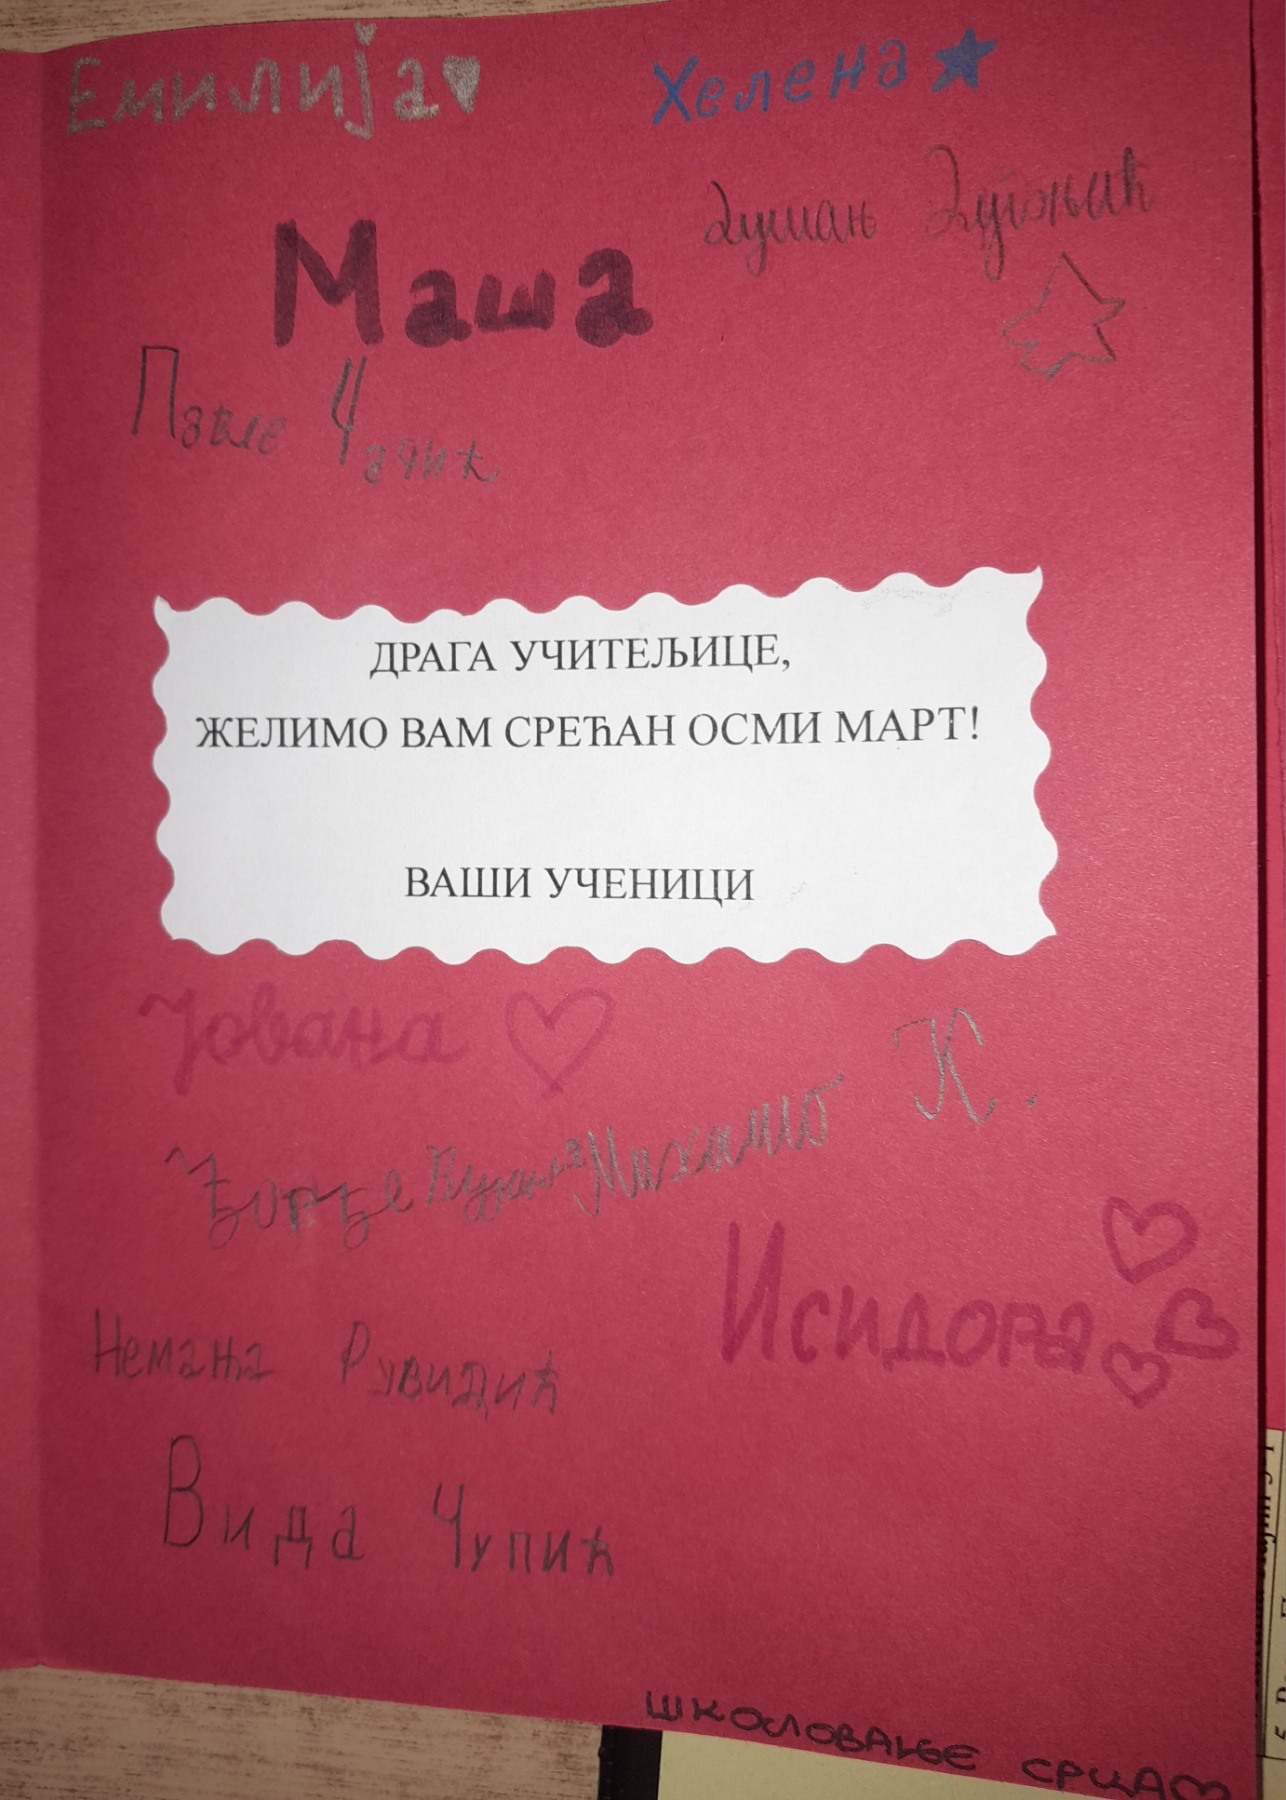 Емилија
Хелена
Душањ
Маша
Павле Чачић
ДРАГА УЧИТЕЉИЦЕ,
ЖЕЛИМО ВАМ СРЕЋАН ОСМИ МАРТ!
ВАШИ УЧЕНИЦИ
Јована
К.
Ђорђе Михаило
Исидора
Немања Рувидић
Вида Чупић
ШКОЛОВАЊЕ СРЦА